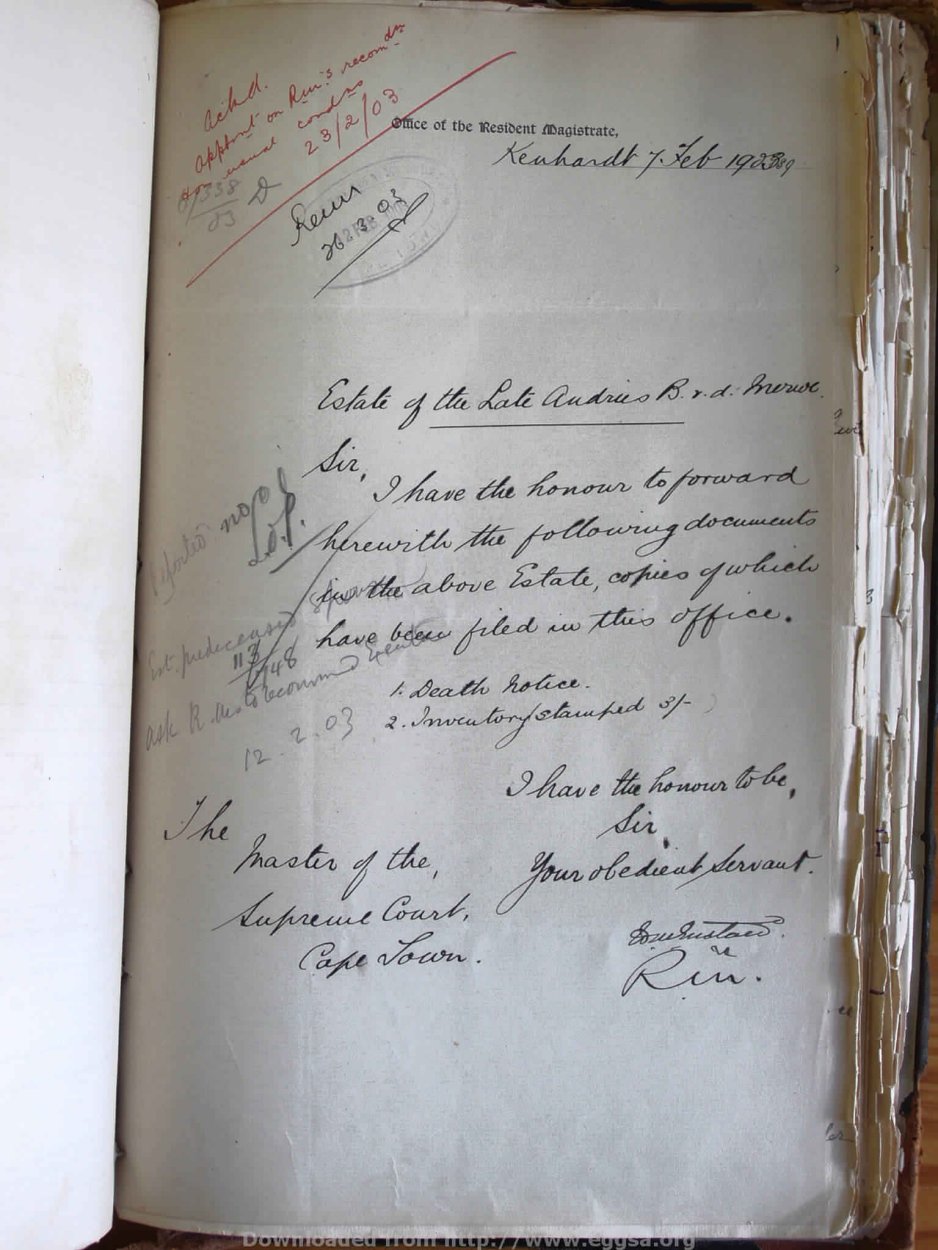 Ackd.
apptmt on R.M.'s recomdn
usual condns
23/2/03
338
03
Office of the Resident Magistrate,
Kenhardt 7 Feb 190
26 3 03
Estate of the Late Andries B. v. d. Merwe.
Sir,
I have the honour to forward
herewith the following documents
in the above Estate, copies of which
have been filed in this office.
1. Death Notice.
2. Inventory stamped 3/-
no
Est. predeceased spouse
113
48
ask R.M. to recommend
12.2.03
I have the honour to be,
Sir,
Your obedient Servant.
R.M.
The
Master of the,
Supreme Court,
Cape Town.
Downloaded from http://www.eggsa.org